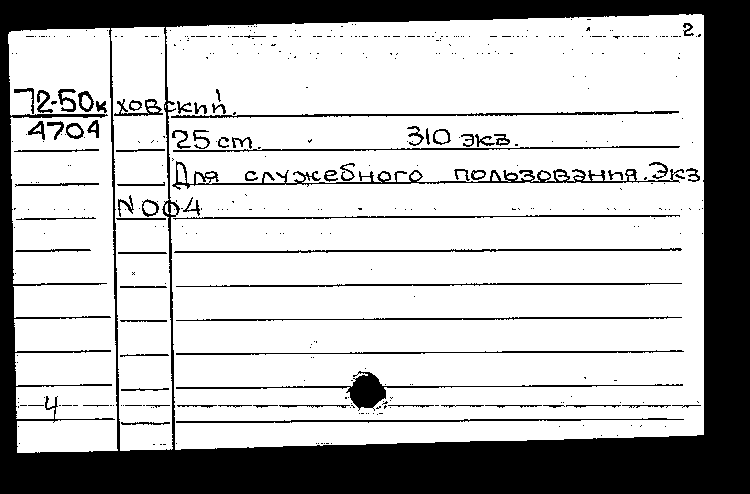 2.
72-50к ховский.
4704 25 cm. 310 экз.
Для служебного пользования. Экз
N 004
4